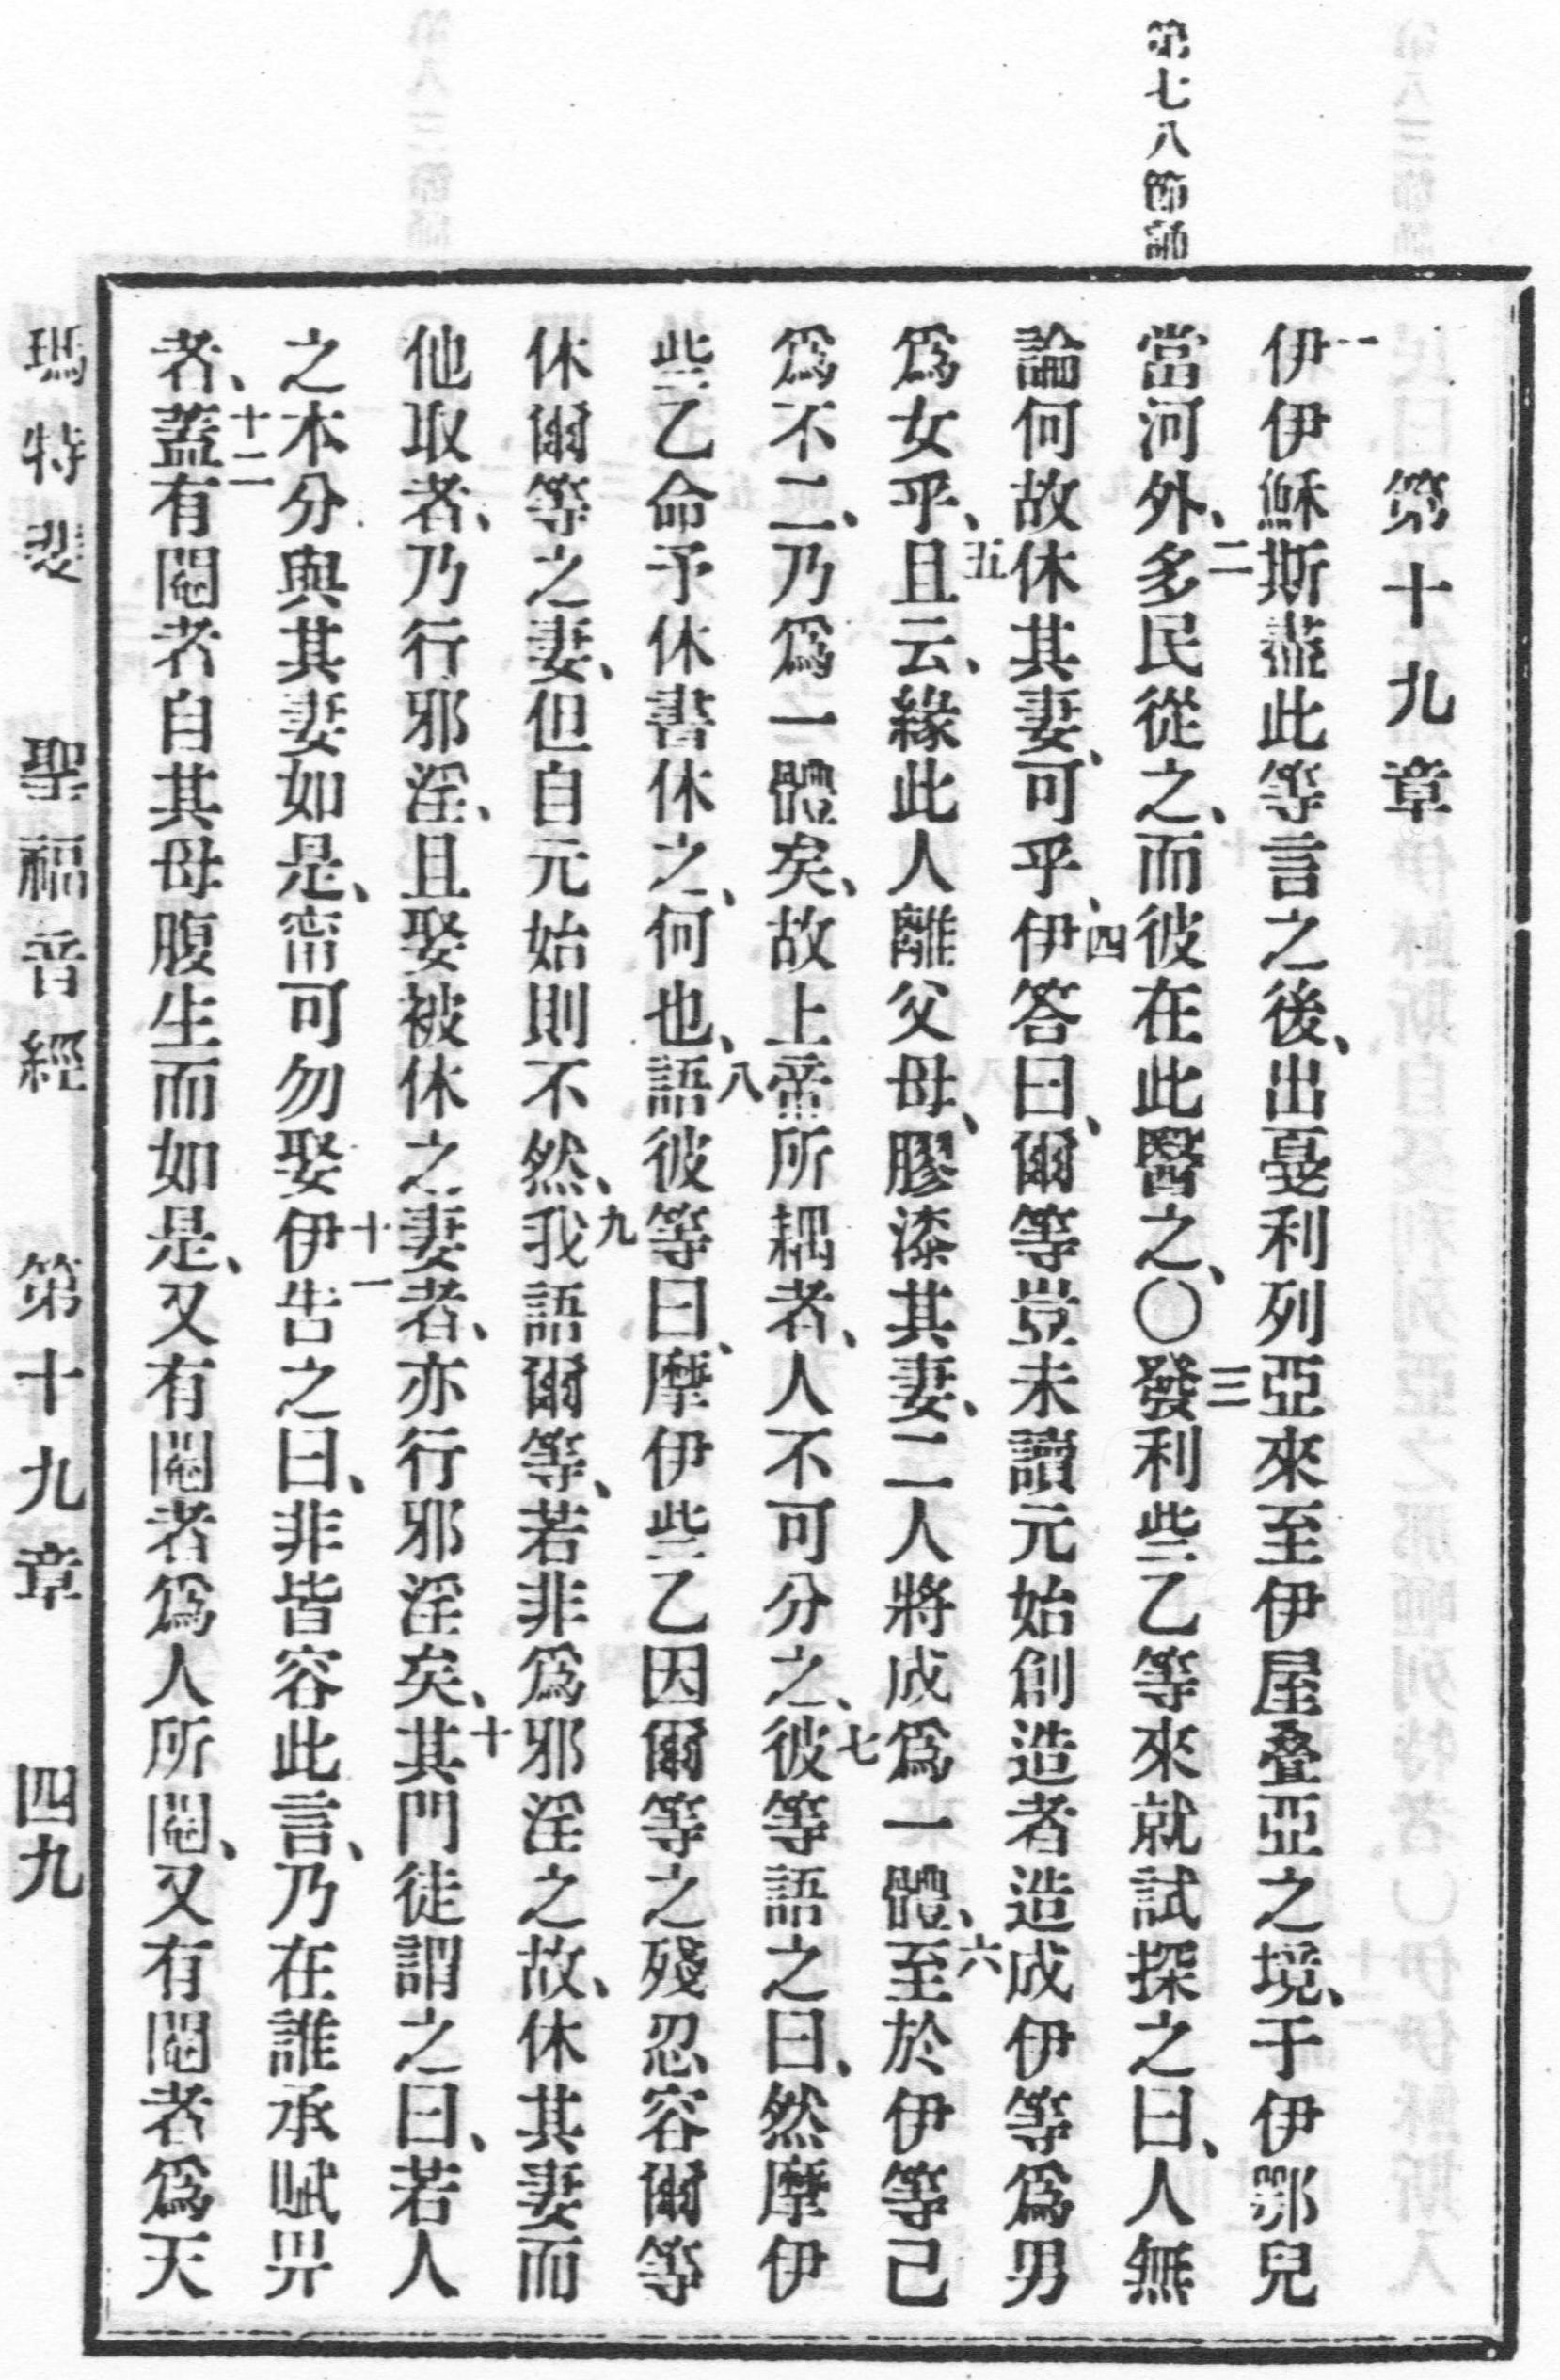 第七八節誦
第十九章
一伊伊穌斯蓋此等言之後、出戛利列亞來至伊屋叠亞之境、于伊鄂兒
當河外、二多民從之、而彼在此醫之、〇三發利些乙等來就試探之曰、人無
論何故休其妻、可乎、四伊答曰、爾等豈未讀元始創造者造成伊等爲男
爲女乎、五且云、緣此人離父母、膠漆其妻、二人將成爲一體、六至於伊等己
爲不二、乃爲一體矣、故上帝所耦者、人不可分之、七彼等語之曰、然摩伊
些乙命予休書休之、何也、八語彼等曰、摩伊些乙因爾等之殘忍容爾等
休爾等之妻、但自元始則不然、九我語爾等、若非爲邪淫之故、休其妻而
他取者、乃行邪淫、且娶被休之妻者、亦行邪淫矣、十其門徒謂之曰、若人
之本分與其妻如是、甯可勿娶十一伊告之曰、非皆容此言、乃在誰承賦畀
者、十二蓋有閹者自其母腹生而如是、又有閹者爲人所閹、又有閹者爲天
瑪特斐 聖福音經 第十九章 四九